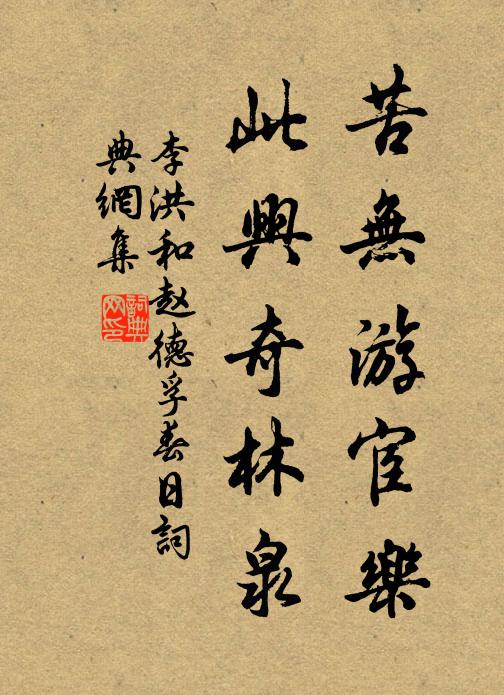 苦無游宦樂
此興奇林泉
李洪和赵德孚春日詞
典網集
詞典网印